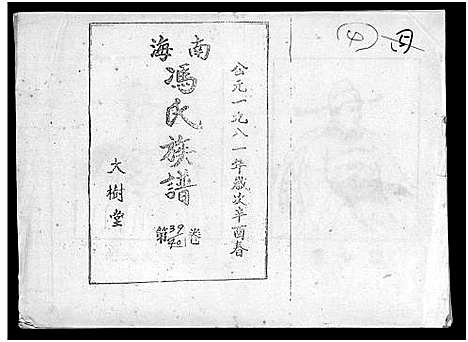 ④
公元一九八一年歲次辛酉春
海南
馮氏族譜
第39 40卷
大樹堂